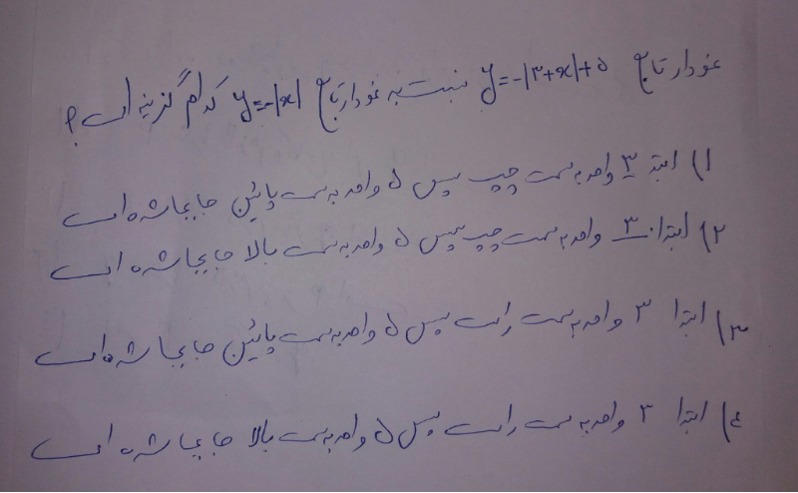 نمودار تابع y=-|۳+x|+۵ نسبت به نمودار تابع y=-|x| کدام گزینه است؟
۱) ابتدا ۳ واحد به سمت چپ سپس ۵ واحد به سمت پائین جابجا شده است
۲) ابتدا ۳ واحد به سمت چپ سپس ۵ واحد به سمت بالا جابجا شده است
۳) ابتدا ۳ واحد به سمت راست سپس ۵ واحد به سمت پائین جابجا شده است
۴) ابتدا ۳ واحد به سمت راست سپس ۵ واحد به سمت بالا جابجا شده است